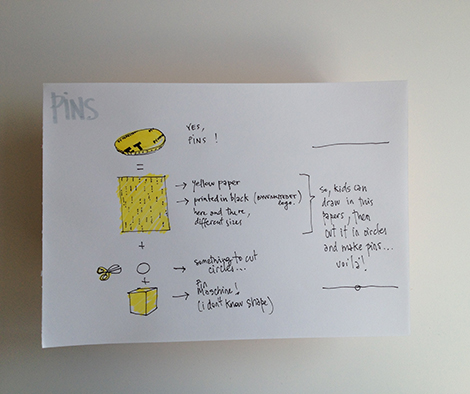 PINS
YES,
PINS !
=
→ yellow paper
→ printed in black
logo.
here and there,
different sizes
so, kids can
draw in this
papers, then
cut it in circles
and make pins...
voi'là!
+
→ something to cut
circles...
+
→ PIN
Maschine!
(i don't know shape)